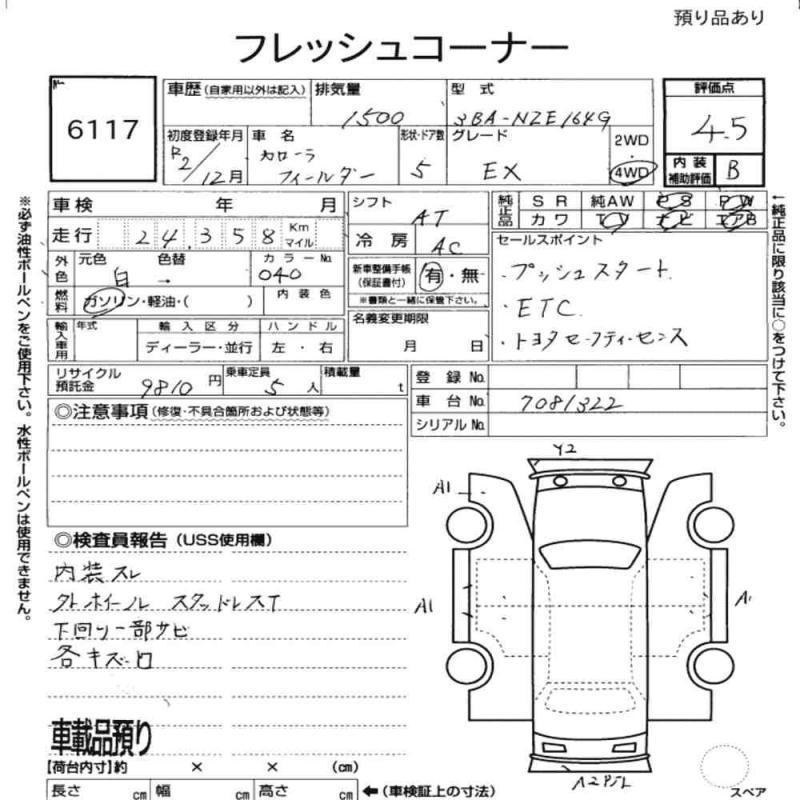 預り品あり
フレッシュコーナー
No. 6117
車歴 (自家用以外は記入) 排気量 1500 型式 3BA-NZE164G 評価点 4.5
初度登録年月 R2/12月 車名 カローラフィールダー 形状・ドア数 5 グレード EX 2WD 4WD 内装補助評価 B
車検 年 月 シフト AT 純正品 SR 純AW PS PW
走行 24,358 Km マイル 冷房 AC カワ TV ナビ エアB
外色 元色 白 色替 → カラーNo. 040 新車整備手帳(保証書付) 有・無 ※書類と一緒に保管下さい。
セールスポイント
・プッシュスタート
・ETC
・トヨタセーフティーセンス
燃料 ガソリン・軽油・( ) 内装色
輸入車用 年式 輸入区分 ディーラー・並行 ハンドル 左・右 名義変更期限 月 日
リサイクル預託金 9810円 乗車定員 5人 積載量 t
登録No.
車台No. 7081322
シリアルNo.
◎注意事項(修復・不具合箇所および状態等)
◎検査員報告(USS使用欄)
内装スレ
外ホイール スタッドレスT
下回り一部サビ
各キズ・凹
車載品預り
【荷台内寸】約 × × (cm)
長さ cm 幅 cm 高さ cm ←(車検証上の寸法)
Y2
A1
A1
A1
A2P5L
スペア
※必ず油性ボールペンをご使用下さい。水性ボールペンは使用できません。
←純正品に限り該当に○をつけて下さい。